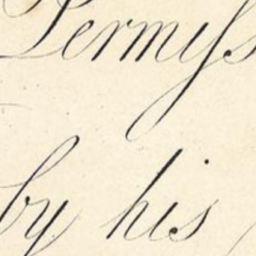 Permiſs
by his